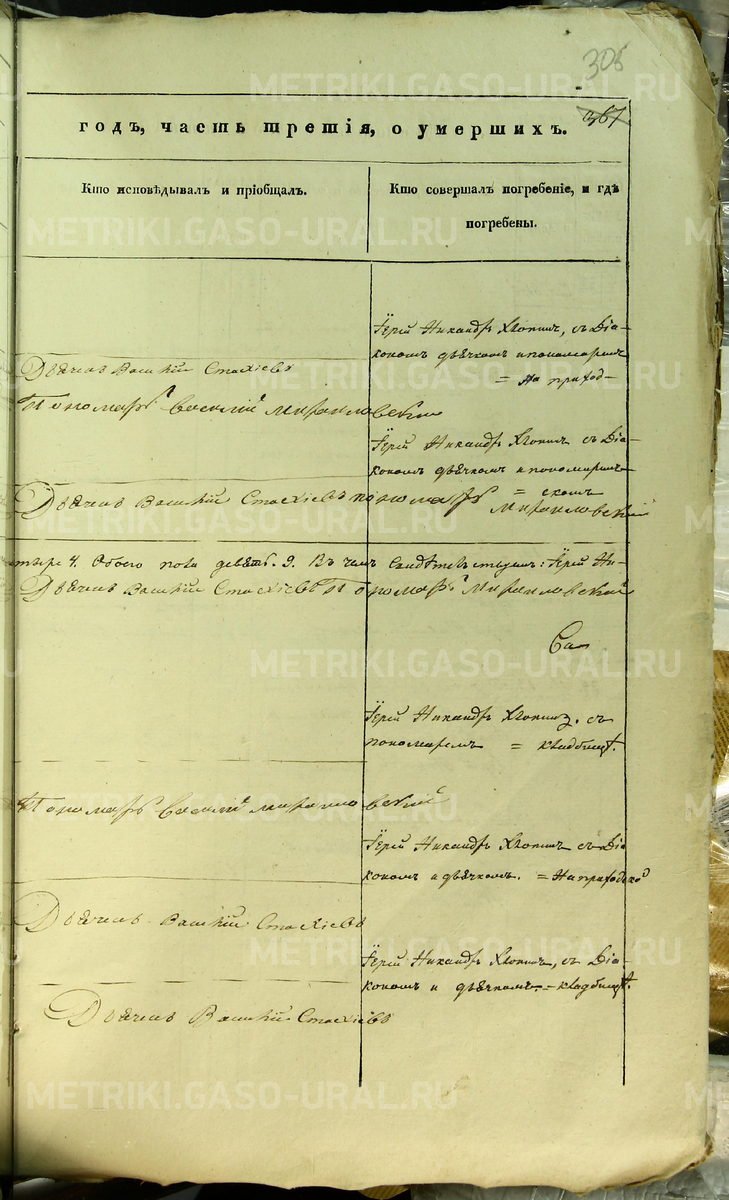 305
367
годъ, часть третія, о умершихъ.
Кто исповѣдывалъ и пріобщалъ.
Кто совершалъ погребеніе, и гдѣ
погребены.
Іерей Никандръ Хлопинъ, съ Діа-
кономъ дьячкомъ и пономаремъ
= На приход-
Дьячекъ Василій Стахіевъ
Пономарь Василій
Іерей Никандръ Хлопинъ съ Діа-
кономъ дьячкомъ и пономаремъ
= скомъ
Дьячекъ Василій Стахіевъ пономарь
тыре 4. Обоего пола девять. 9. Въ чемъ свидѣтельствуемъ: Іерей Ни-
Дьячекъ Василій Стахіевъ Пономарь
Іерей Никандръ Хлопинъ. съ
пономаремъ = кладбищ.
Пономарь Василій
Іерей Никандръ Хлопинъ съ Діа
кономъ и дьячкомъ. = На приходской
Дьячекъ Василій Стахіевъ
Іерей Никандръ Хлопинъ, съ Діа-
кономъ и дьячкомъ. = кладбищ.
Дьячекъ Василій Стахіевъ
METRIKI.GASO-URAL.RU